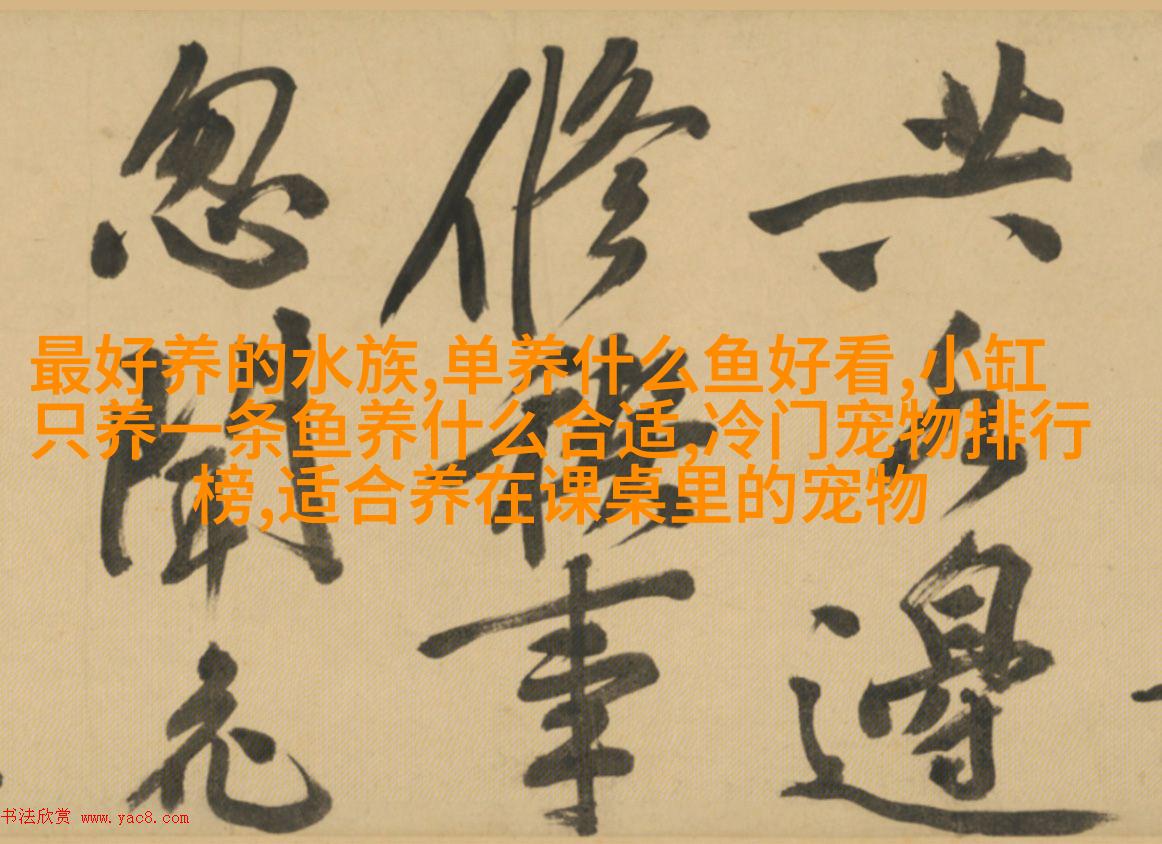 最好养的水族,单养什么鱼好看,小缸
只养一条鱼养什么合适,冷门宠物排行
榜,适合养在课桌里的宠物
共邊
修禊事
忽
书法欣赏 www.yac8.com